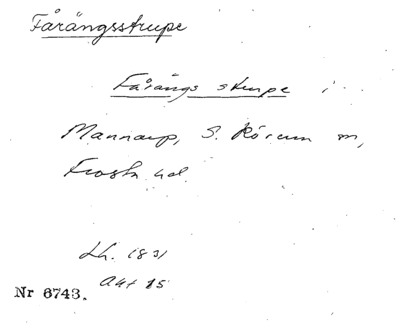 Fårängsstrupe
Fårängs strupe i
Mannarp, S. Rörum sn,
Frosta hd.
Lh. 1831
Akt 15
Nr 6743.